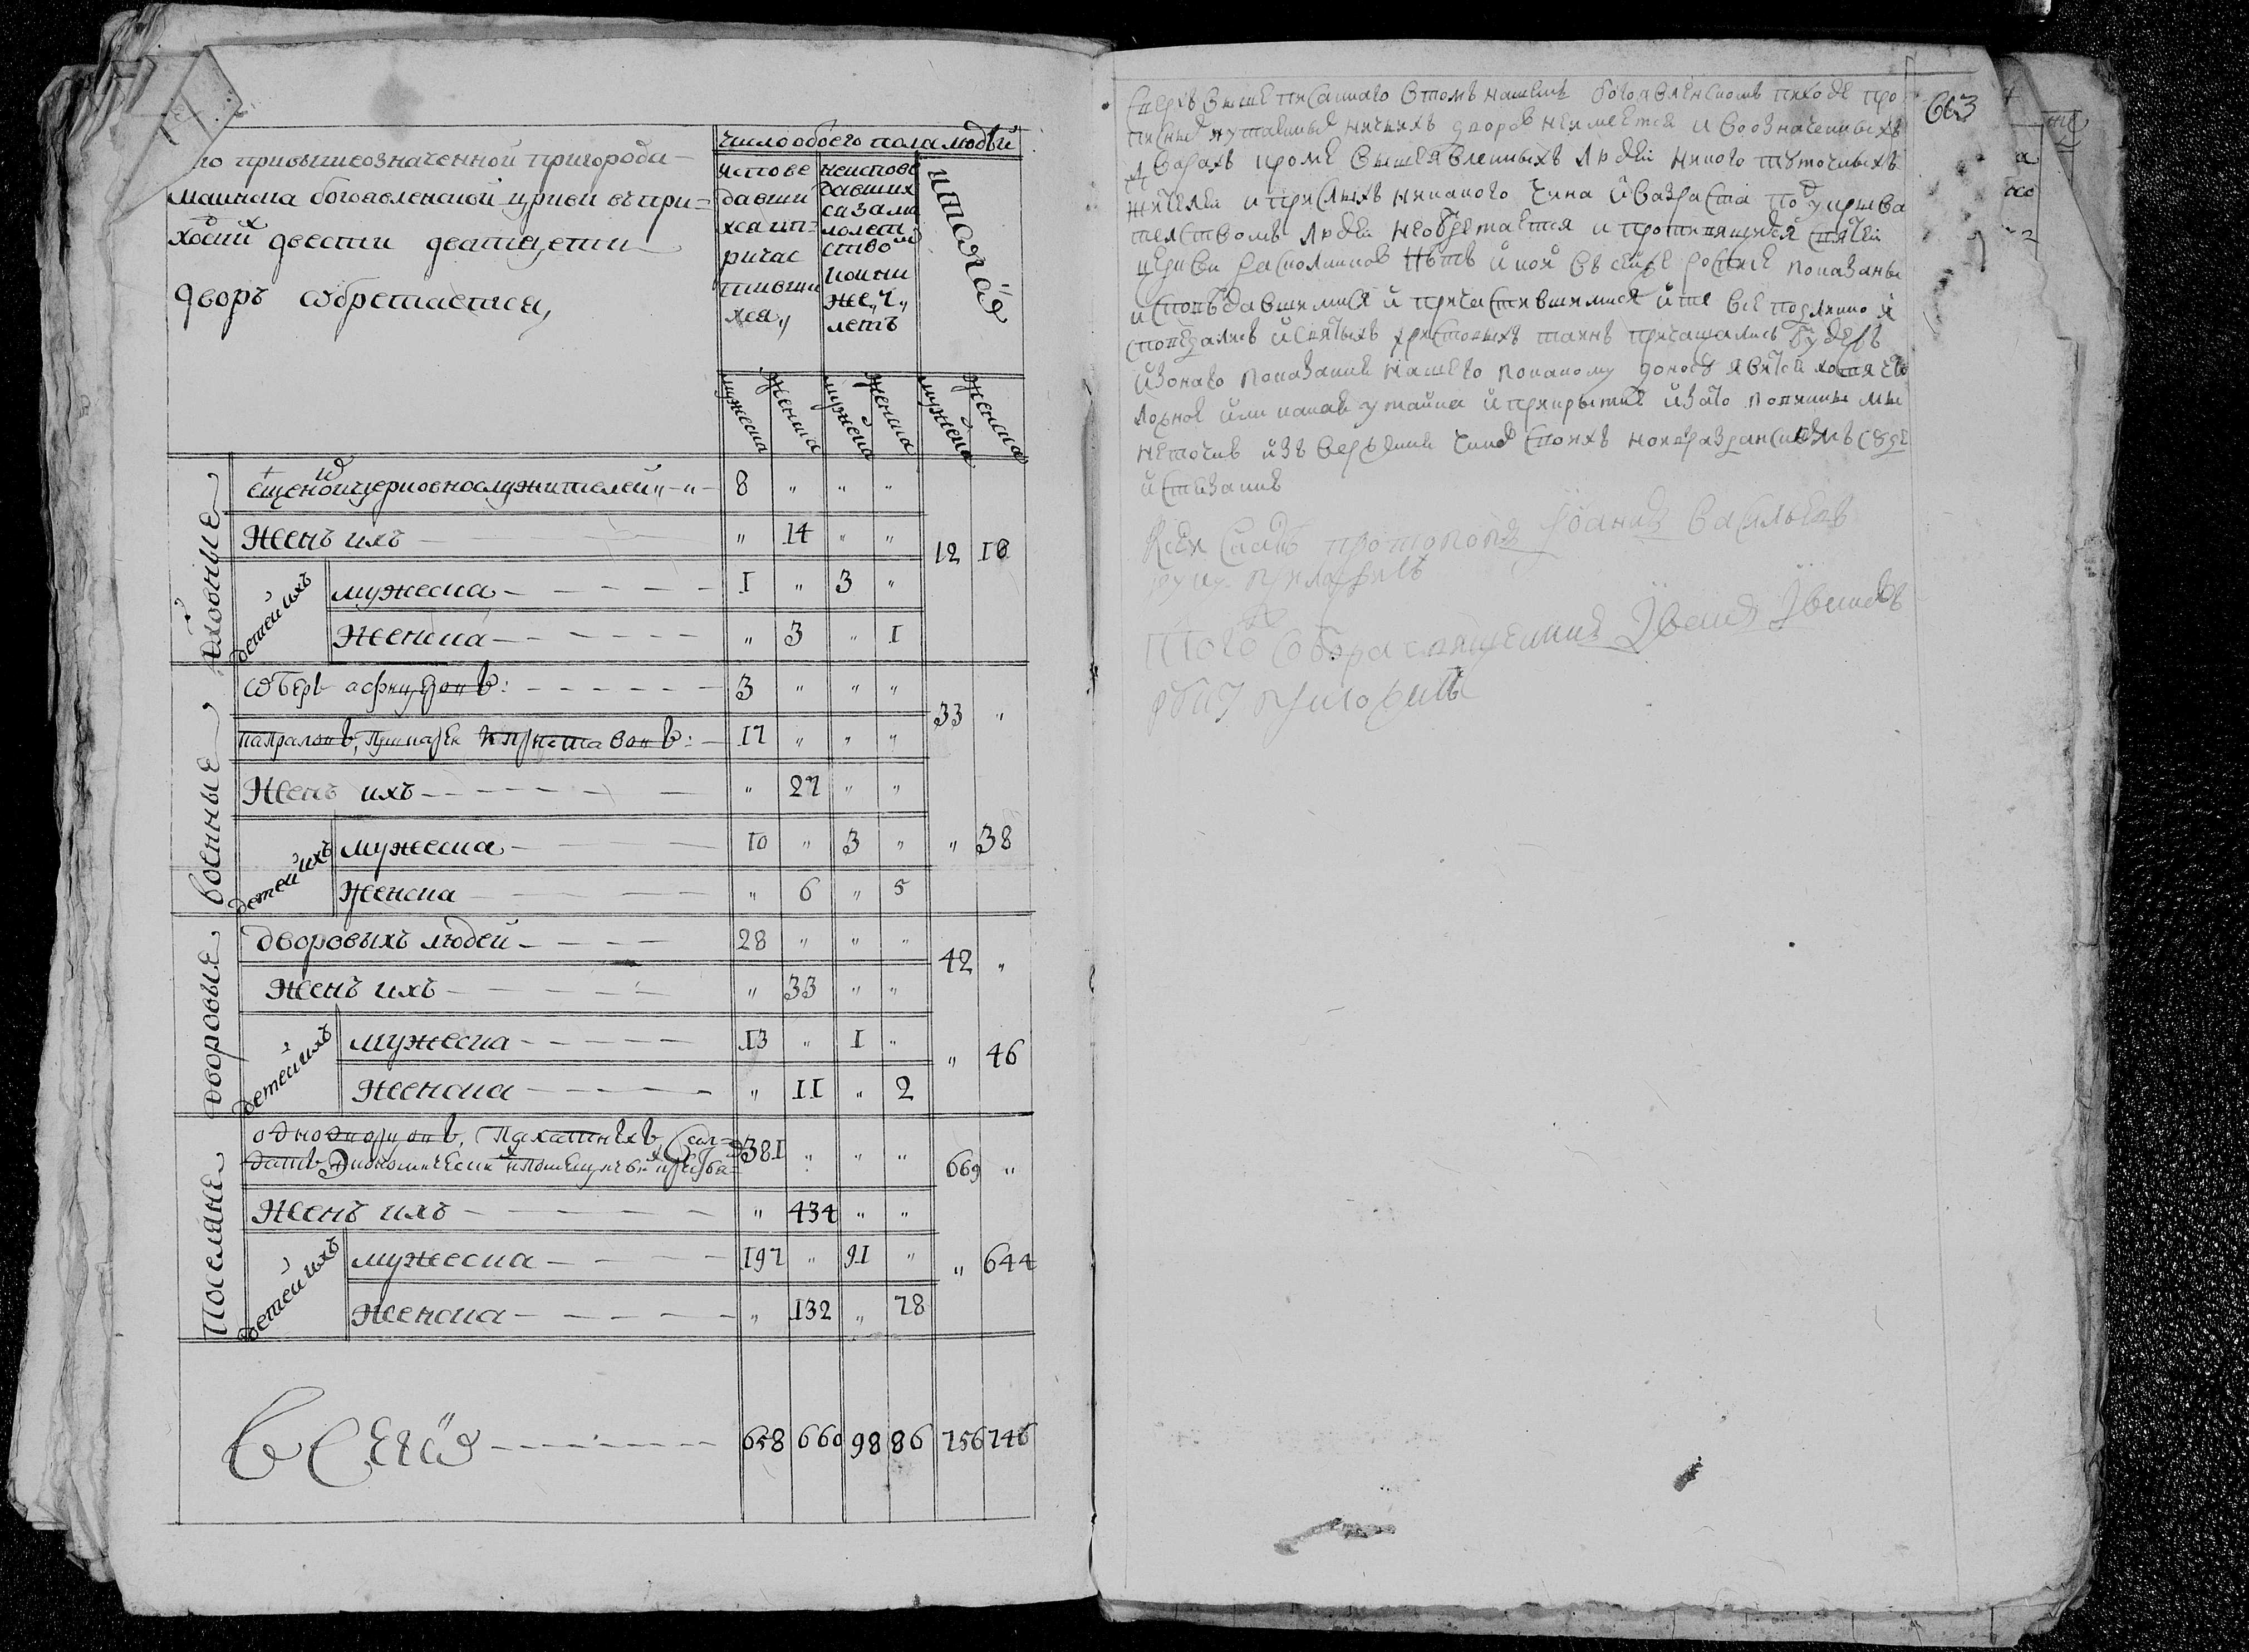 что при вышеозначенной пригорода
маинска богоявленской церкви въ при=
ходских двести дватцети
дворъ собретается,
число обоего пола людей
исповедавшихся ип=ричастившихся„
неисповедавших сазамалолетством и они же„ ч„ летъ
итого
мужеска
женска
мужеска
женска
мужеска
женска
духовные
священо и церковнослужителей 8 „ „ „ 12 18
Женъ ихъ „ 14 „ „
детей ихъ
мужеска 1 „ 3 „
женска „ 3 „ 1
военные
оберъ афицеровъ: 3 „ „ „ 33 „
капраловъ, пушкарей 17 „ „ „
Женъ ихъ „ 27 „ „
детей ихъ
мужеска 10 „ 3 „ „ 38
Женска „ 6 „ 5
дворовые
дворовыхъ людей 28 „ „ „ 42 „
Женъ ихъ „ 33 „ „
детей ихъ
мужеска 13 „ 1 „ „ 46
Женска „ 11 „ 2
Поселяне
однодворцовъ, пахатныхъ сол=
датъ, экономическихъ и помещичьихъ 381 „ „ „ 669 „
Женъ ихъ „ 434 „ „
детей ихъ
мужеска 197 „ 91 „ „ 644
Женска „ 132 „ 78
всего 658 660 98 86 756 746
663
сверхъ выше писаннаго втомъ нашемъ богоявленскомъ приходе про
писныхъ и утаенныхъ ничьихъ дворовъ неимеется и воозначенныхъ
дворахъ кроме вышеявленныхъ людей никого туточныхъ
жителей и пришлыхъ никакого чина и возраста подукрыва
тельствомъ людей необретается и противящихся святей
церкви расколниковъ нетъ и кои въ сей росписе показаны
исповедавшимися и причастившимися и те все подлинно и
споведались и святыхъ христовыхъ таинъ причащались будеже
изонаго показания нашего покакому доносу явится хотя что
ложное или какая утайка и прикрытие изато повинны мы
неточию извержении чиновъ своихъ ногражданскимъ суде
истезание
Къ сей протопопъ Иоаннъ Васильевъ
руку приложилъ
Того собора священникъ Иванъ Ивановъ
руку приложилъ